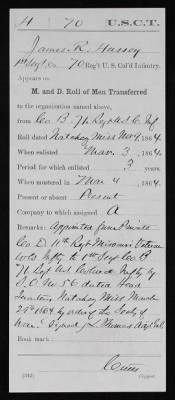 H 70 U.S.C.T.
James R. Hussey
1st Sgt, Co. , 70 Reg't U. S. Col'd Infantry.
Appears on
M. and D. Roll of Men Transferred
to the organization named above,
from Co B. 71 Regt U S C Inf
Roll dated Natchez Miss Nov 9, 1864.
When enlisted Mar. 3, 1864.
Period for which enlisted 3 years.
When mustered in Mar 4, 1864.
Present or absent Present
Company to which assigned A
Remarks: Appointed from Private
Co D. 11th Regt Missouri Veteran
Vols Infty to 1st Sergt Co B
71 Regt U S Colored Infty by
S.O. No 56 dated Head
Quarters Natchez Miss March
1864 by order of the Secty of
War. Signed L. Thomas Adjt Genl.
Book mark:
(312) Copyist.